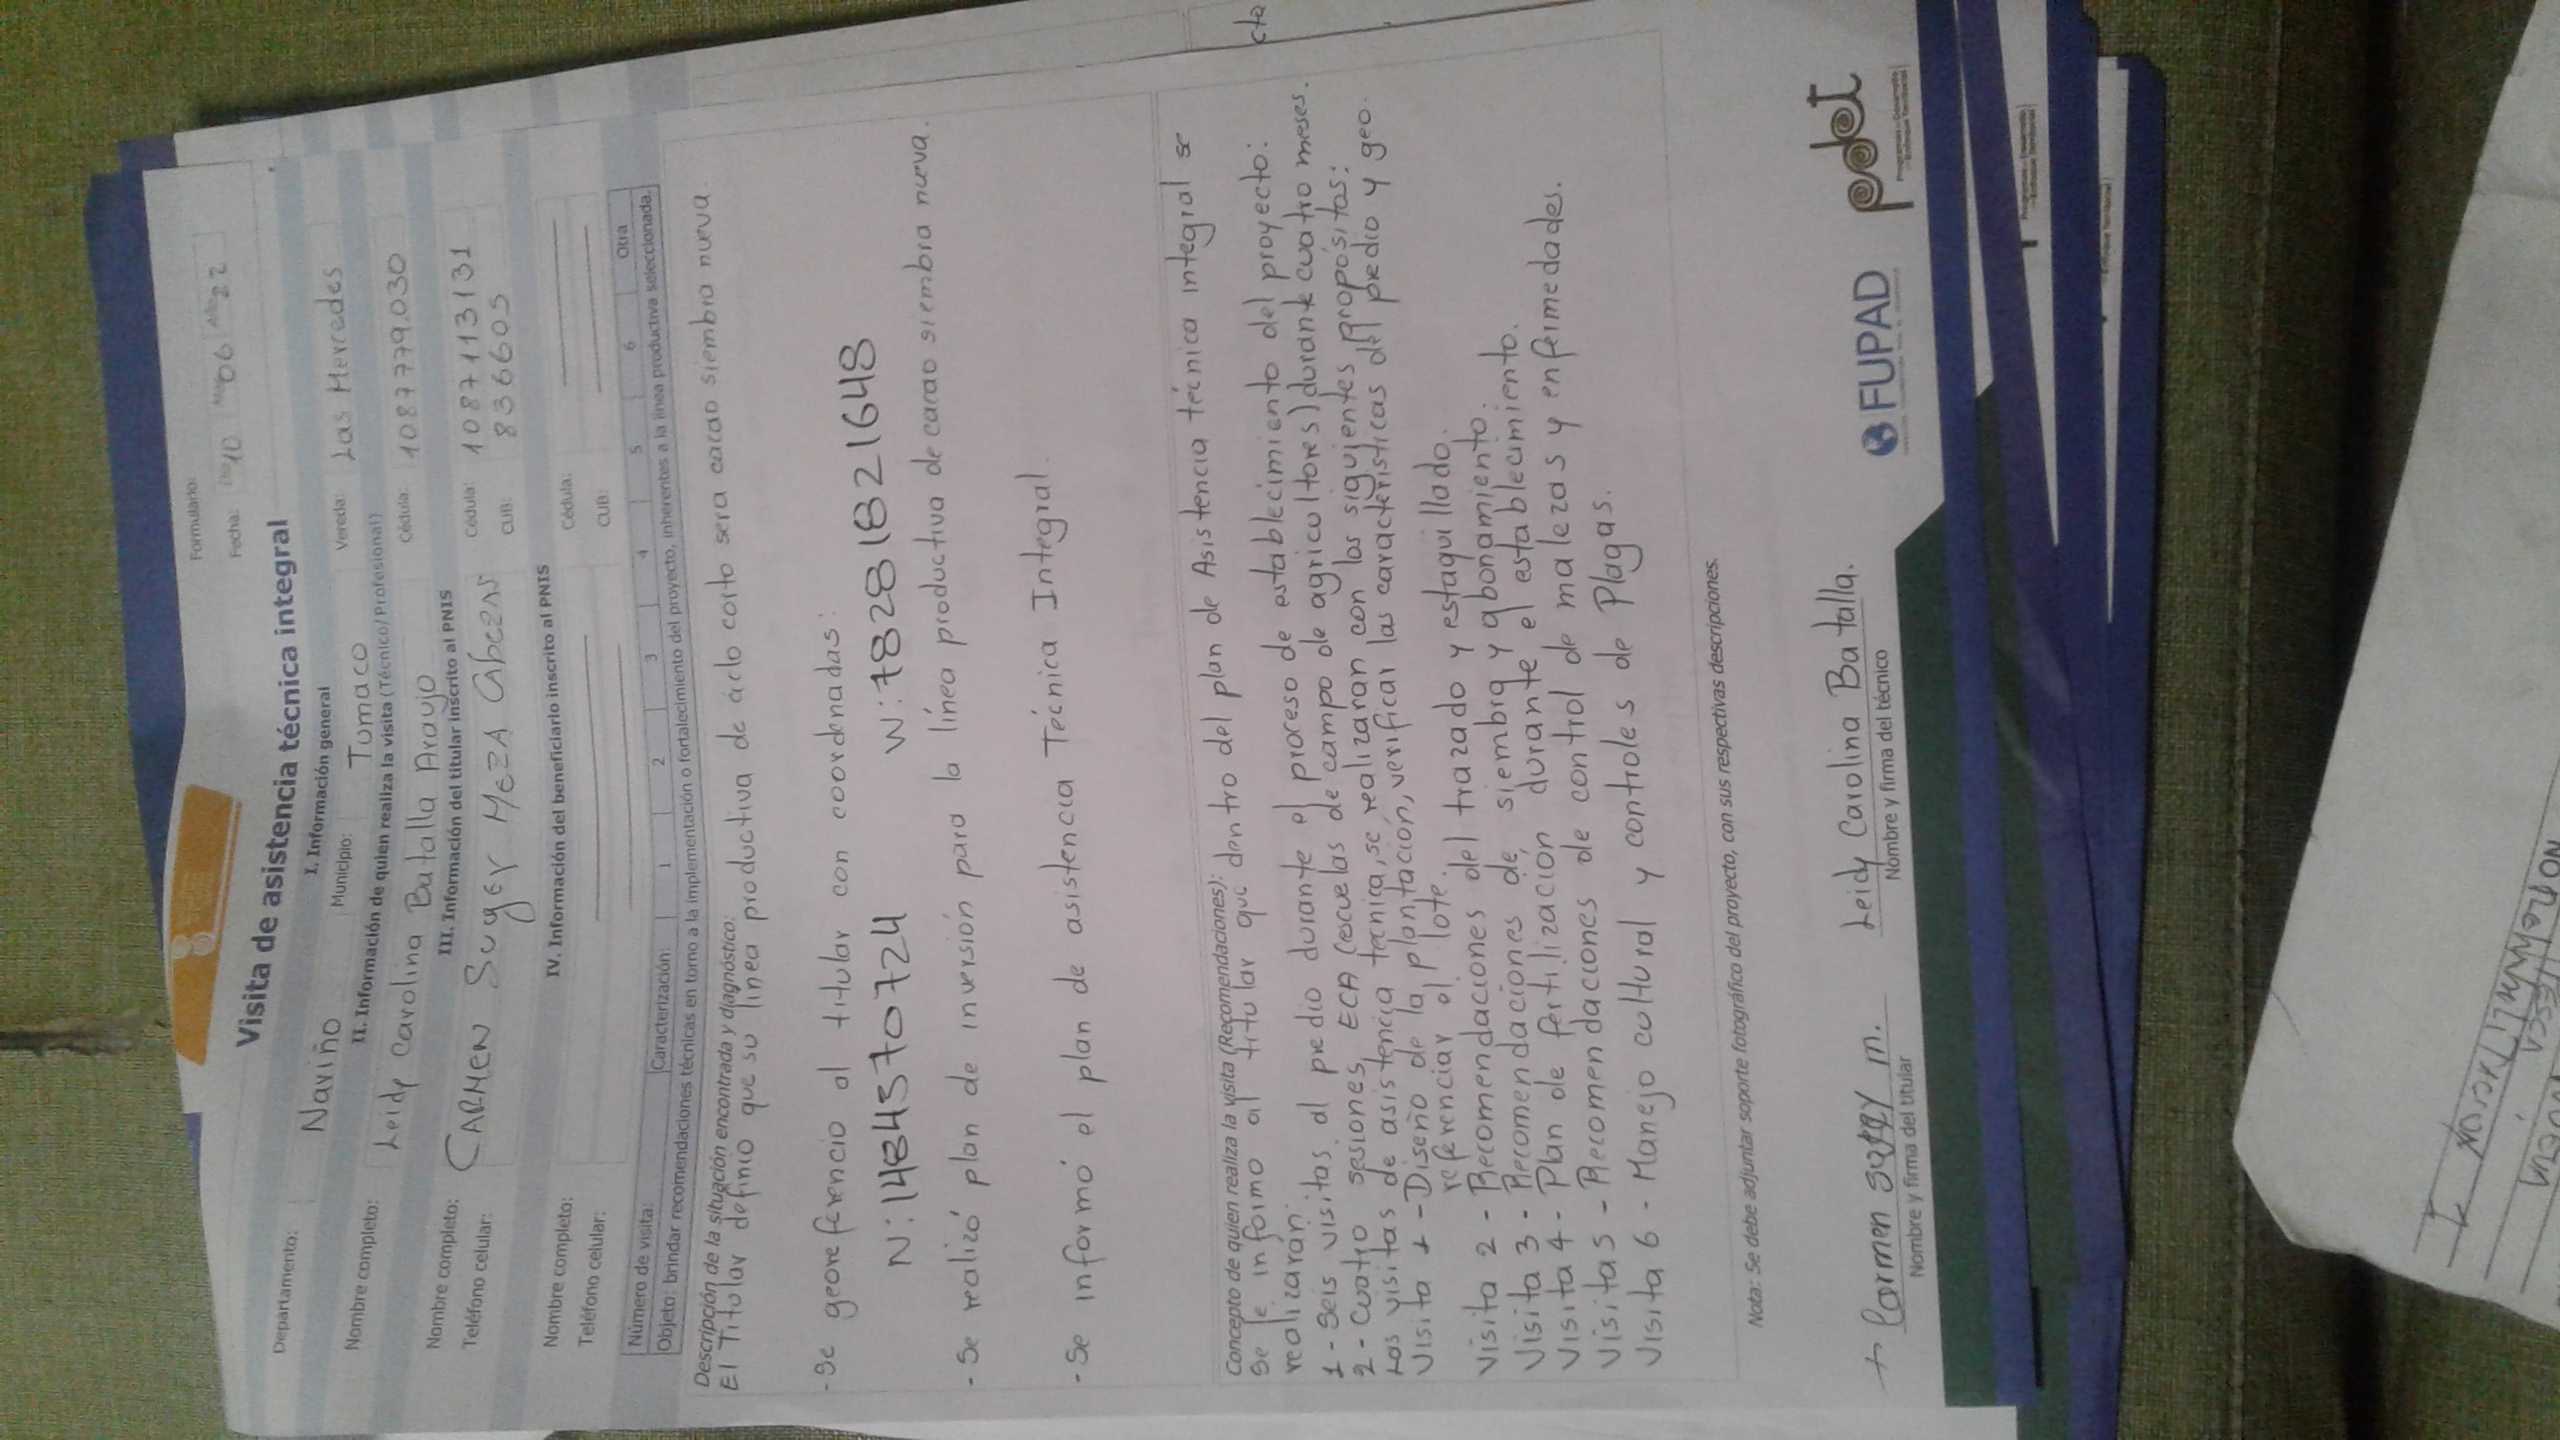 Formulario:
Fecha: Día 10 Mes 06 Año 22
Visita de asistencia técnica integral
I. Información general
Departamento: Nariño Municipio: Tumaco Vereda: Las Mercedes
II. Información de quien realiza la visita (Técnico/Profesional)
Nombre completo: Leidy Carolina Batalla Araujo Cédula: 1087779.030
III. Información del titular inscrito al PNIS
Nombre completo: CARMEN Sugey MezA Cabezas Cédula: 1087113131
Teléfono celular: CUB: 836605
IV. Información del beneficiario inscrito al PNIS
Nombre completo: Cédula:
Teléfono celular: CUB:
Número de visita: Caracterización: 1 2 3 4 5 6 Otra
Objeto: brindar recomendaciones técnicas en torno a la implementación o fortalecimiento del proyecto, inherentes a la línea productiva seleccionada.
Descripción de la situación encontrada y diagnóstico:
El Titular definio que su línea productiva de ciclo corto sera cacao siembra nueva.
- Se georeferencio al titular con coordenadas:
N:1484370724 W:78281821648
- Se realizó plan de inversión para la línea productiva de cacao siembra nueva.
- Se informó el plan de asistencia Técnica Integral.
Concepto de quien realiza la visita (Recomendaciones):
Se le informo al titular que dentro del plan de Asistencia técnica integral se
realizaran:
1 - Seis visitas al predio durante el proceso de establecimiento del proyecto:
2 - Cuatro sesiones ECA (escuelas de campo de agricultores) durante cuatro meses.
Las visitas de asistencia tecnica, se realizaran con los siguientes propósitos:
Visita 1 - Diseño de la plantacion, verificar las características del predio y geo.
referenciar el lote.
Visita 2 - Recomendaciones del trazado y estaquillado.
Visita 3 - Recomendaciones de siembra y abonamiento.
Visita 4 - Plan de fertilizacion durante el establecimiento.
Visita 5 - Recomendaciones de control de malezas y enfermedades.
Visita 6 - Manejo cultural y controles de Plagas.
Nota: Se debe adjuntar soporte fotográfico del proyecto, con sus respectivas descripciones.
+ Carmen sugey m. Leidy Carolina Batalla.
Nombre y firma del titular Nombre y firma del técnico
FUPAD
pdet
Programas de Desarrollo
con Enfoque Territorial
cta